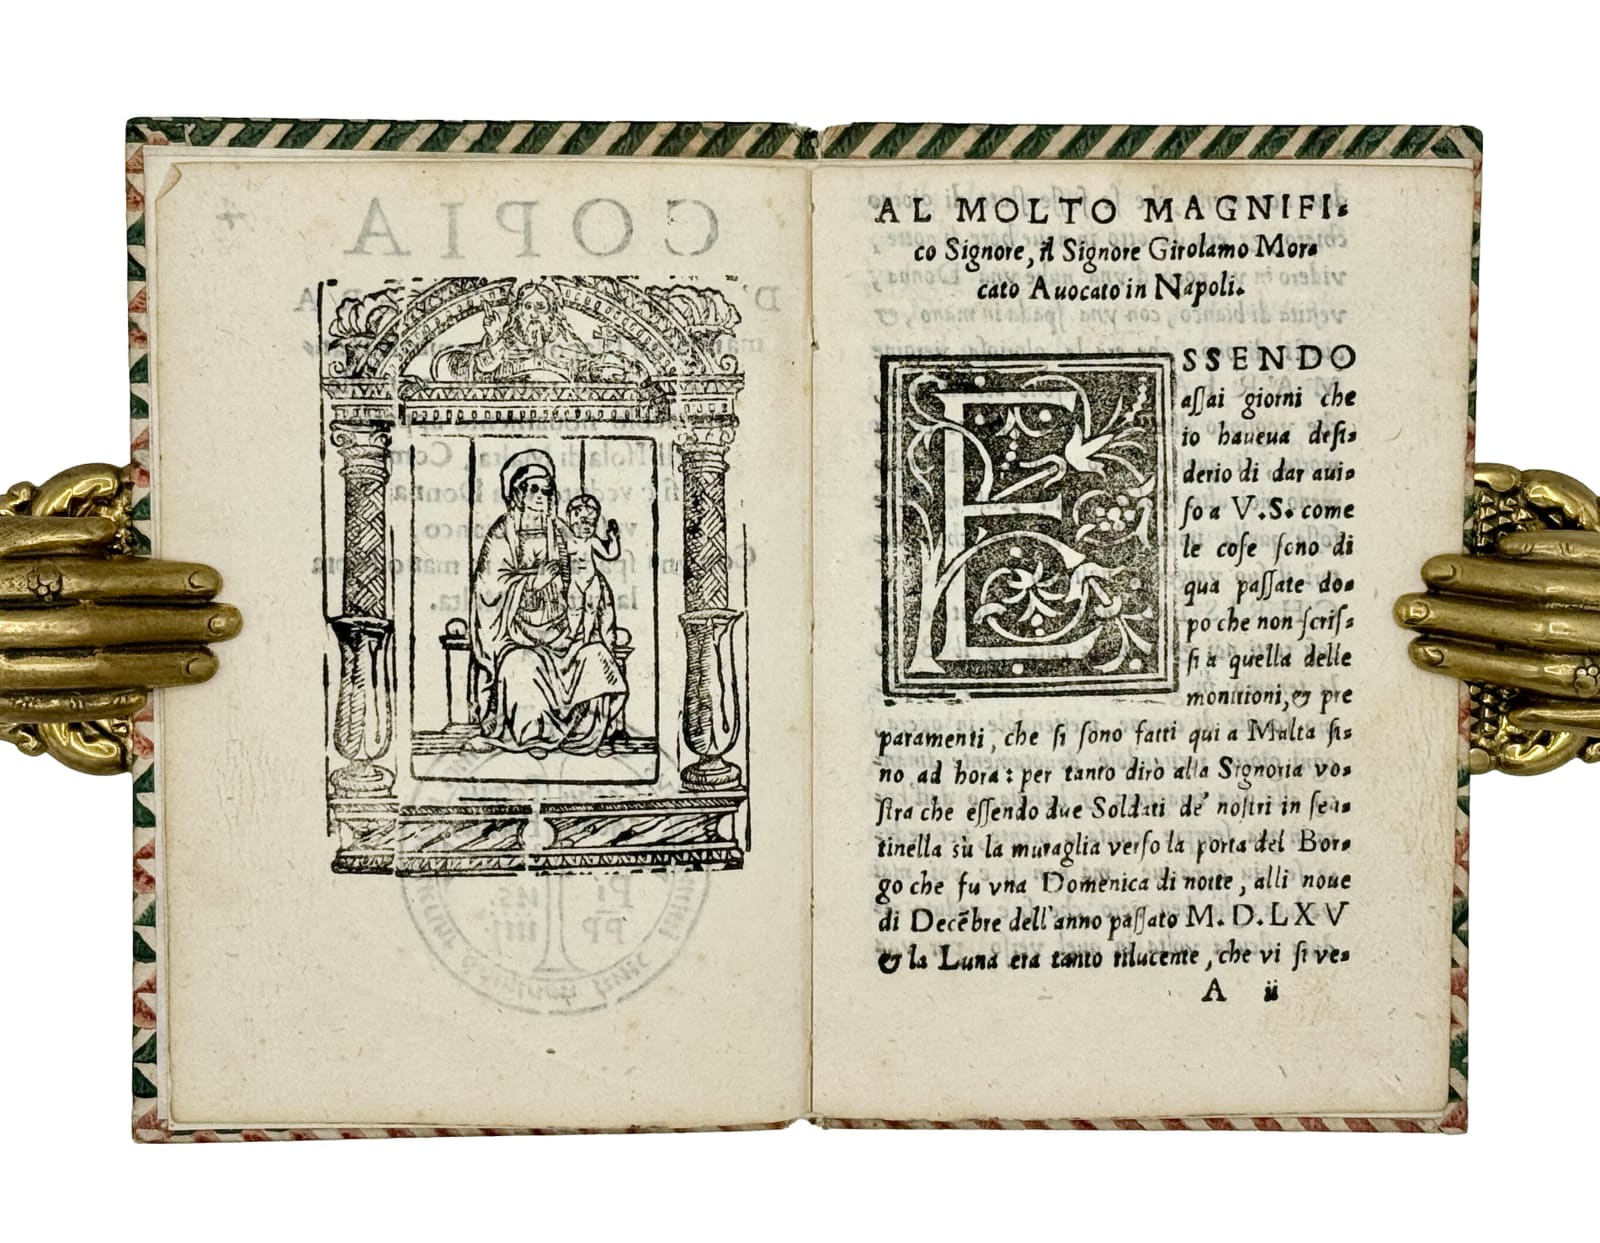 AL MOLTO MAGNIFI-
co Signore, il Signore Girolamo Mor-
cato Auocato in Napoli.
ESSENDO
aſſai giorni che
io haueua deſi-
derio di dar aui-
ſo a V.S. come
le coſe ſono di
qua paſſate do-
po che non ſcriſ-
ſi a quella delle
monitioni, & pre
paramenti, che ſi ſono fatti qui a Malta ſi-
no, ad hora: per tanto dirò alla Signoria vo-
ſtra che eſſendo due Soldati de' noſtri in ſen-
tinella sù la muraglia verſo la porta del Bor-
go che fu vna Domenica di notte, alli noue
di Decẽbre dell'anno paſſato M.D.LXV
& la Luna era tanto rilucente, che vi ſi ve-
A ii
COPIA